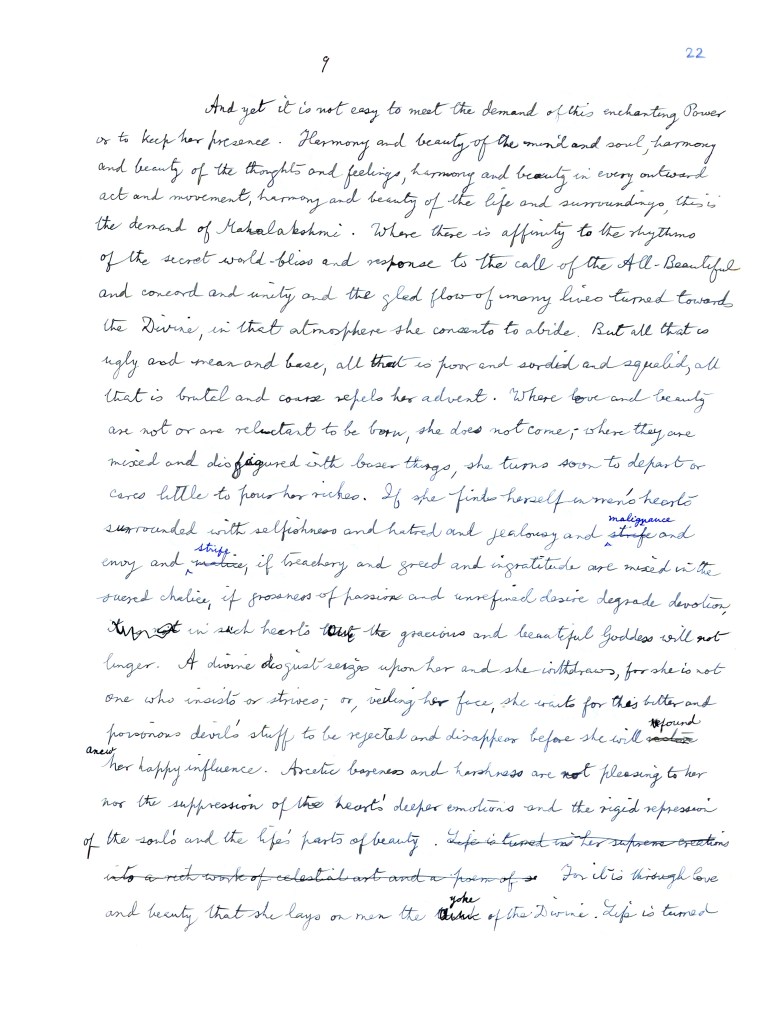 22
9
And yet it is not easy to meet the demand of this enchanting Power
or to keep her presence. Harmony and beauty of the mind and soul, harmony
and beauty of the thoughts and feelings, harmony and beauty in every outward
act and movement, harmony and beauty of the life and surroundings, this is
the demand of Mahalakshmi. Where there is affinity to the rhythms
of the secret world-bliss and response to the call of the All-Beautiful
and concord and unity and the glad flow of many lives turned towards
the Divine, in that atmosphere she consents to abide. But all that is
ugly and mean and base, all that is poor and sordid and squalid, all
that is brutal and coarse repels her advent. Where love and beauty
are not or are reluctant to be born, she does not come; where they are
mixed and disfigured with baser things, she turns soon to depart or
cares little to pour her riches. If she finds herself in men's hearts
malignance
surrounded with selfishness and hatred and jealousy and strife and
strife
envy and malice, if treachery and greed and ingratitude are mixed in the
sacred chalice, if grossness of passion and unrefined desire degrade devotion,
in such hearts the gracious and beautiful Goddess will not
linger. A divine disgust seizes upon her and she withdraws, for she is not
one who insists or strives; or, veiling her face, she waits for this bitter and
refound
poisonous devil's stuff to be rejected and disappear before she will
anew
her happy influence. Ascetic bareness and harshness are not pleasing to her
nor the suppression of the heart's deeper emotions and the rigid repression
of the soul's and the life's parts of beauty. Life is turned in her supreme creations
into a rich work of celestial art and a poem of For it is through love
yoke
and beauty that she lays on men the of the Divine. Life is turned